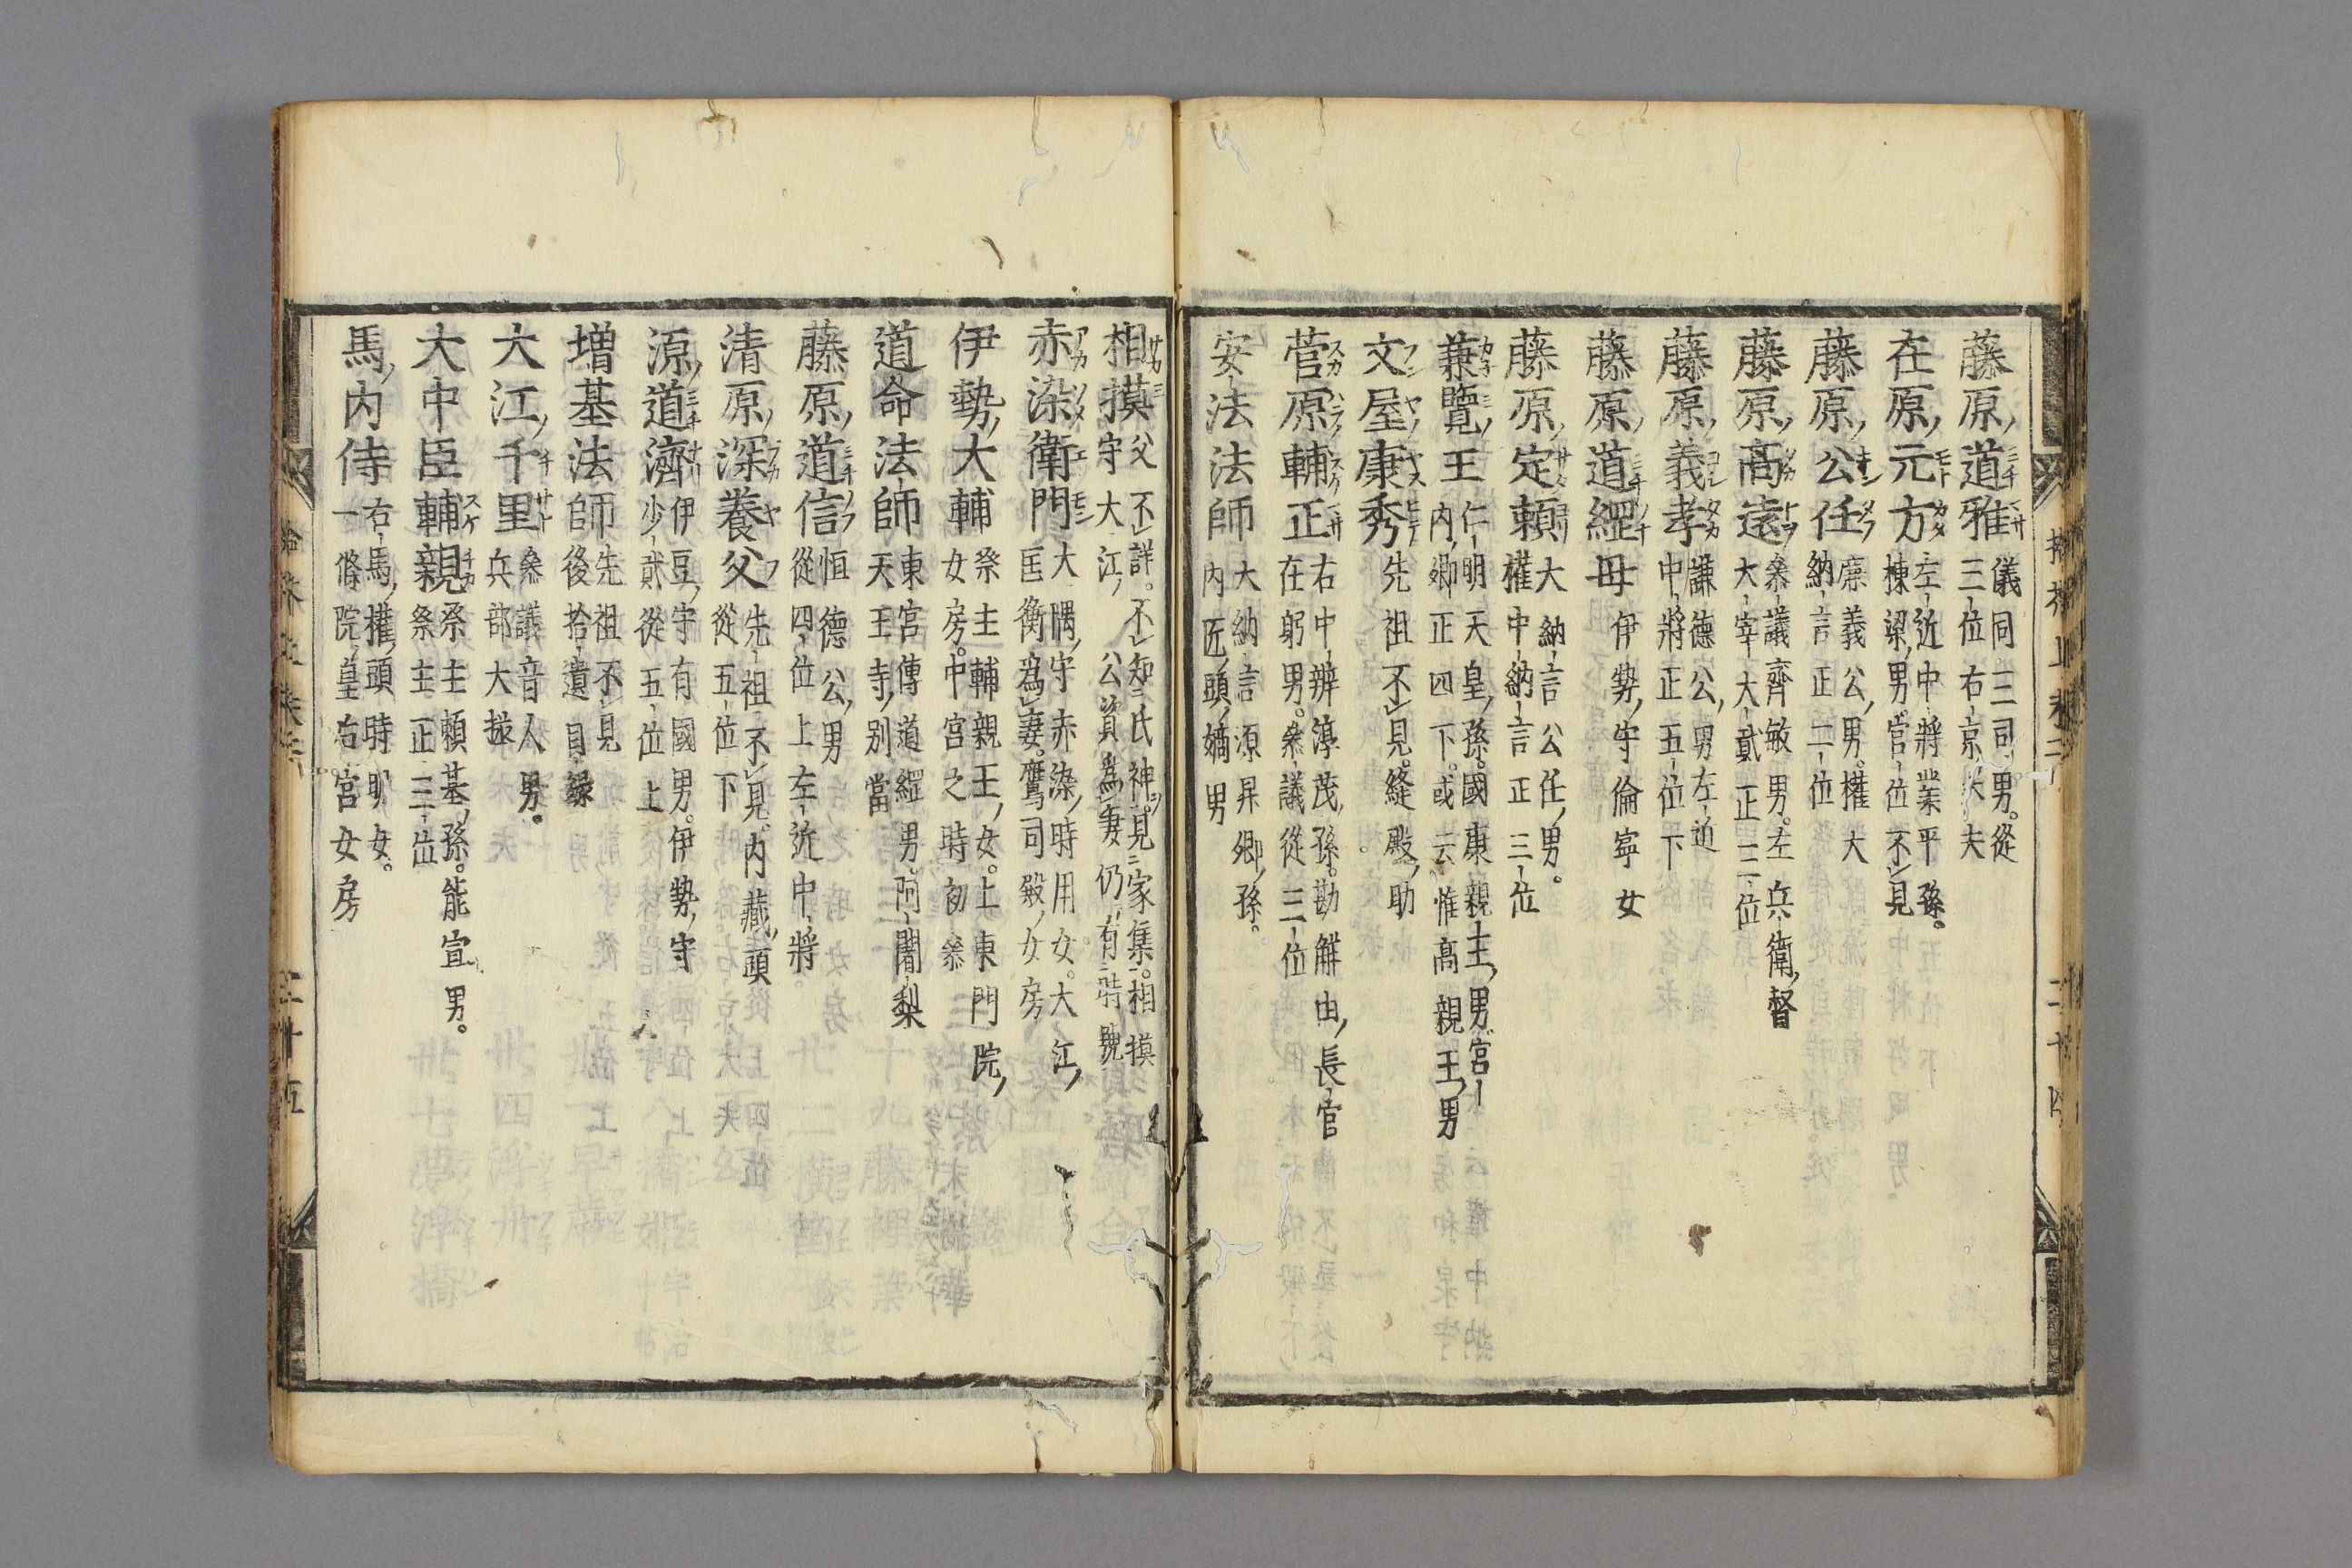 藤原道雅 儀同三司男。從
三位右京大夫
在原元方 左近中將業平孫。
棟梁男。官位不見
藤原公任 廉義公男。權大
納言正二位
藤原高遠 參議齊敏男。左兵衛督
大宰大貳正三位
藤原義孝 謙德公男左近
中將正五位下
藤原道經母 伊勢守倫寧女
藤原定頼 大納言公任男。
權中納言正三位
兼覽王 仁明天皇孫。國康親王男
內卿正四下。或云惟高親王男
文屋康秀 先祖不見。縫殿助
菅原輔正 右中辨淳茂孫。勘解由長官
在躬男。參議從三位
安法法師 大納言源昇卿孫。
內匠頭嬌男
相摸 父不詳。不知氏神。見家集。相摸
守大江公資爲妻仍有時號
赤染衛門 大隅守赤染時用女。大江
匡衡爲妻。鷹司殿女房
伊勢大輔 祭主輔親王女。上東門院
女房。中宮之時初參
道命法師 東宮傳道經男。阿闍梨
天王寺別當
藤原道信 恒德公男
從四位上左近中將
清原深養父 先祖不見。內藏頭
從五位下
源道濟 伊豆守有國男。伊勢守
少貳從五位上
増基法師 先祖不見
後拾遺目録
大江千里 參議音人男。
兵部大掾
大中臣輔親 祭主頼基孫。能宣男。
祭主正三位
馬內侍 右馬權頭時明女。
一條院皇后宮女房